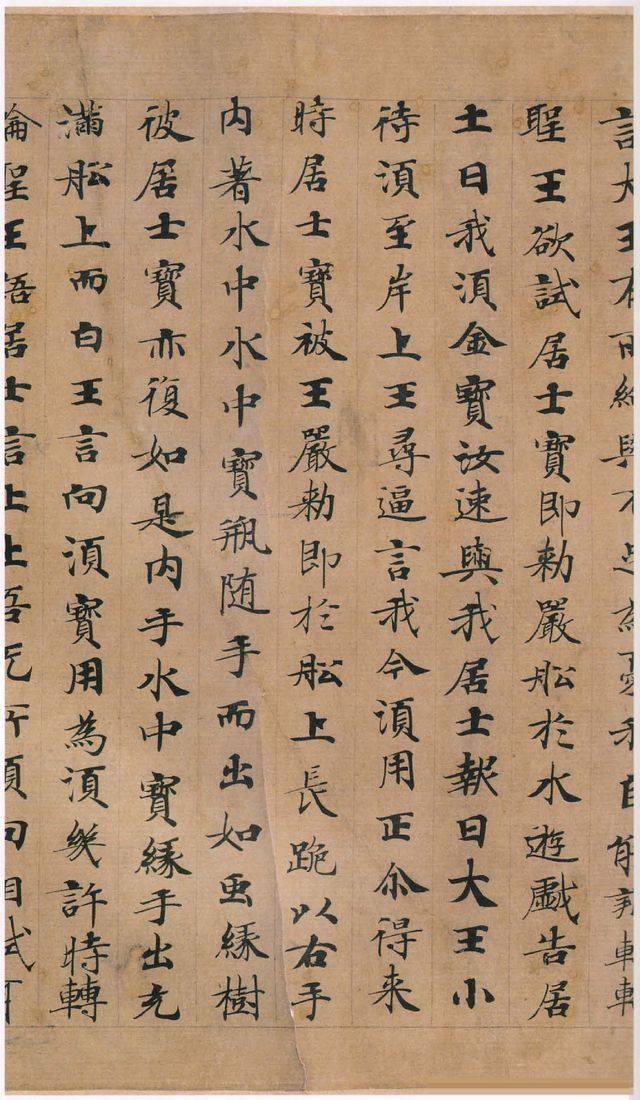 言大王有所給與不足為憂我自能辦轉輪
聖王欲試居士寶即勑嚴舩於水遊戲告居
士曰我湏金寶汝速與我居士報曰大王小
待湏至岸上王尋逼言我今湏用正尒得来
時居士寶被王嚴勑即於舩上長跪以右手
内著水中水中寶瓶随手而出如虫緣樹
彼居士寶亦復如是内手水中寶緣手出充
滿舩上而白王言向湏寶用為湏幾許時轉
輪聖王語居士言止止吾无所湏向相試耳